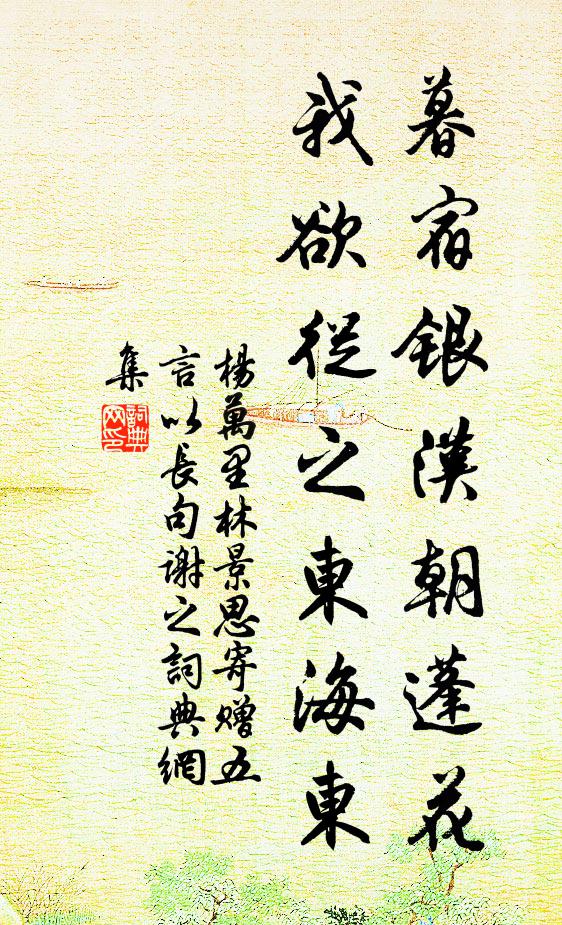 暮宿銀漢朝蓬花
我欲從之東海東
楊萬里林景思寄贈五
言以長句謝之詞典網
集
詞典
网印